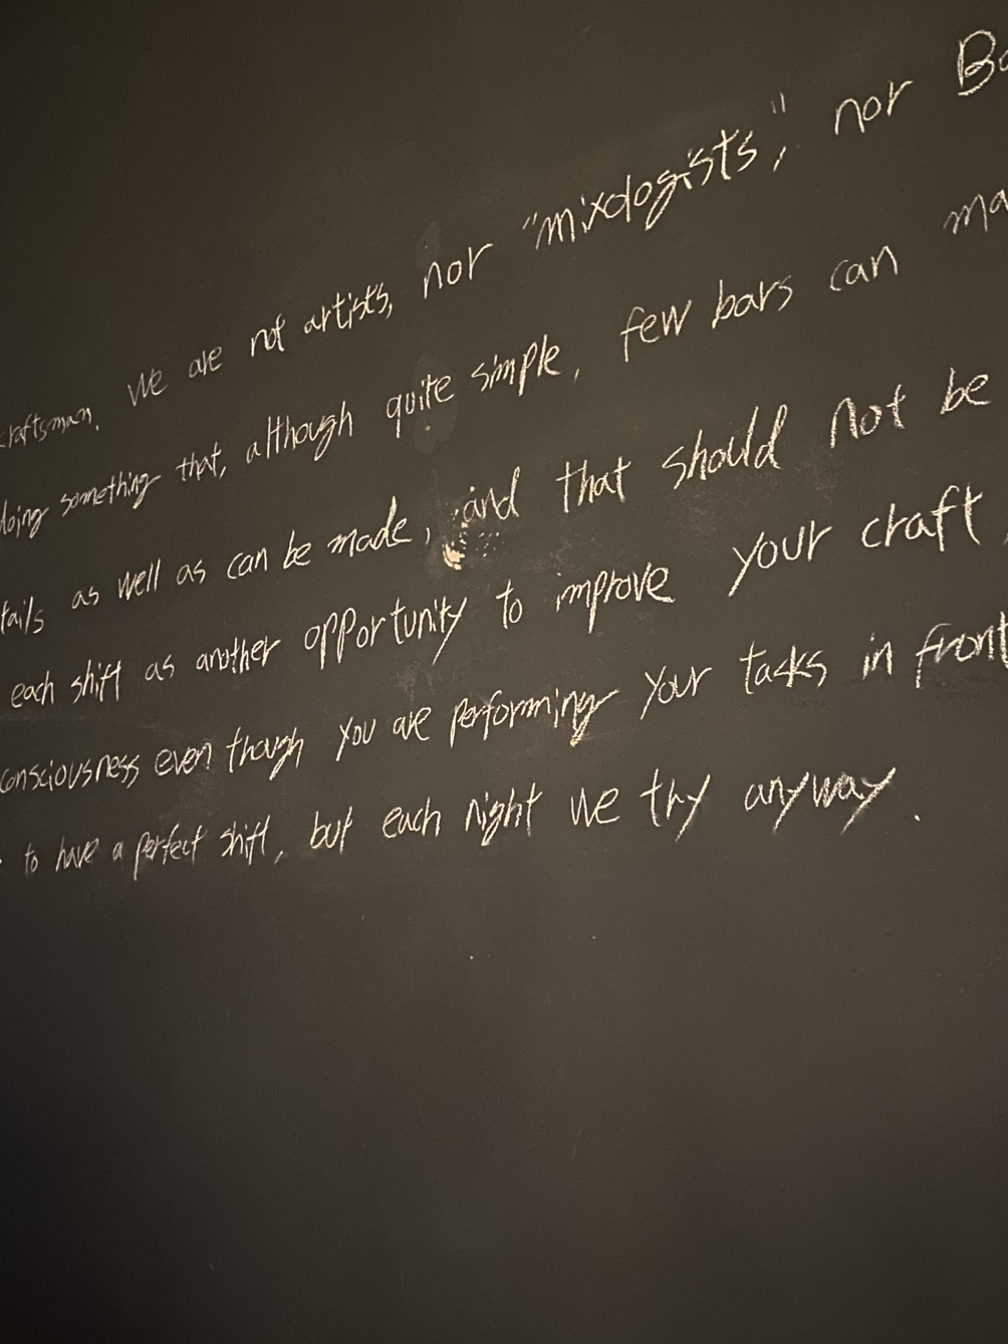 craftsman. We are not artists, nor "mixologists," nor Ba
doing something that, although quite simple, few bars can ma
tails as well as can be made, and that should not be
each shift as another opportunity to improve your craft,
consciousness even though you are performing your tasks in front
to have a perfect shift, but each night we try anyway.